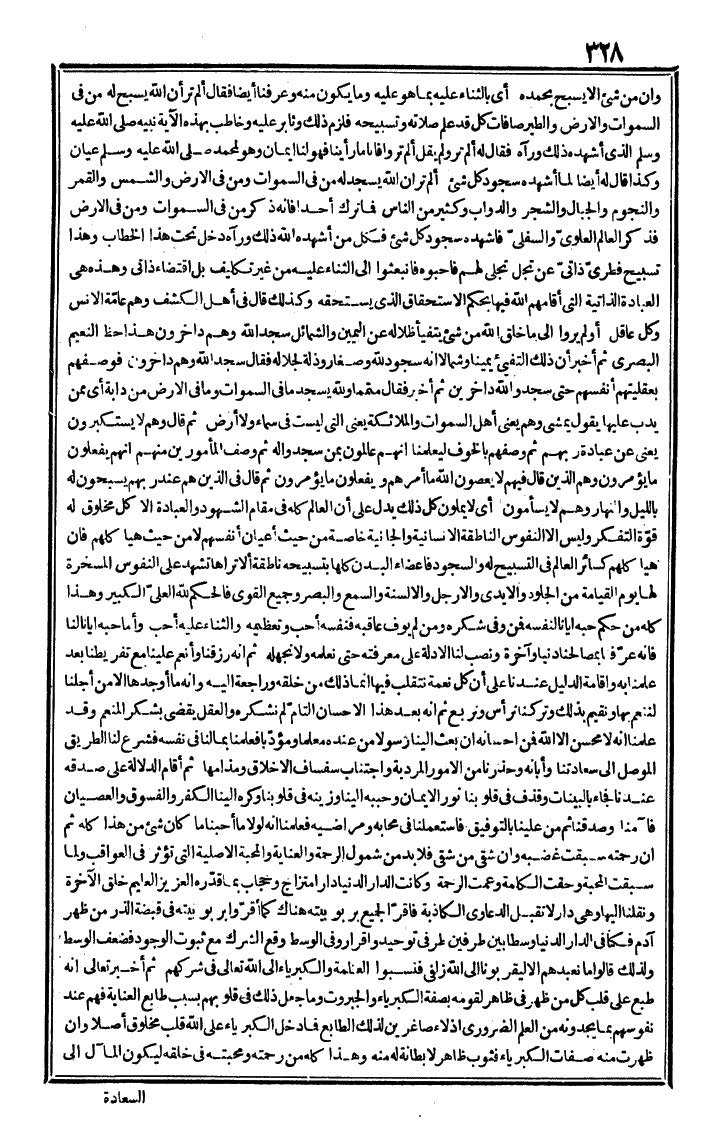 ٣٢٨
وان من شئ الا يسبح بحمده أى بالثناء عليه بما هو عليه وما يكون منه وعرفنا أيضا فقال ألم تر أن الله يسبح له من فى
السموات والارض والطير صافات كل قد علم صلاته وتسبيحه فلزم ذلك وثابر عليه وخاطب بهذه الآية نبيه صلى الله عليه
وسلم الذى أشهده ذلك ورآه فقال له ألم تر ولم يقل ألم تروا فانا ما رأينا فهو لنا ايمان وهو لمحمد صلى الله عليه وسلم عيان
وكذا قال له أيضا لما أشهده سجود كل شئ ألم تر ان الله يسجد له من فى السموات ومن فى الارض والشمس والقمر
والنجوم والجبال والشجر والدواب وكثير من الناس فما ترك أحدا فانه ذكر من فى السموات ومن فى الارض
فذكر العالم العلوى والسفلى فاشهده سجود كل شئ فكل من أشهده الله ذلك ورآه دخل تحت هذا الخطاب وهذا
تسبيح فطرى ذاتى عن تجل تجلى لهم فاحبوه فانبعثوا الى الثناء عليه من غير تكليف بل اقتضاء ذاتى وهذه هى
العبادة الذاتية التى أقامهم الله فيها بحكم الاستحقاق الذى يستحقه وكذلك قال فى أهل الكشف وهم عامّة الانس
وكل عاقل أو لم يروا الى ما خلق الله من شئ يتفيأ ظلاله عن اليمين والشمائل سجد الله وهم داخرون هذا حظ النعيم
البصرى ثم أخبر أن ذلك التفيئ يمينا وشمالا انه سجود لله وصغار وذلة لجلاله فقال سجد الله وهم داخرون فوصفهم
بعقليتهم أنفسهم حتى سجدوا لله داخرين ثم أخبر فقال متمما ولله يسجد ما فى السموات وما فى الارض من دابة أى ممن
يدب عليها يقول يمشى وهم يعنى أهل السموات والملائكة يعنى التى ليست فى سماء ولا أرض ثم قال وهم لا يستكبرون
يعنى عن عبادة ربهم ثم وصفهم بالخوف ليعلمنا انهم عالمون بمن سجدوا له ثم وصف المأمورين منهم انهم يفعلون
ما يؤمرون وهم الذين قال فيهم لا يعصون الله ما أمرهم ويفعلون ما يؤمرون ثم قال فى الذين هم عند ربهم يسبحون له
بالليل والنهار وهم لا يسأمون أى لا يملون كل ذلك يدل على أن العالم كله فى مقام الشهود والعبادة الا كل مخلوق له
قوّة التفكر وليس الا النفوس الناطقة الانسانية والجانية خاصة من حيث أعيان أنفسهم لا من حيث هيا كلهم فان
هيا كلهم كسائر العالم فى التسبيح له والسجود فاعضاء البدن كلها بتسبيحه ناطقة ألا تراها تشهد على النفوس المسخرة
لها يوم القيامة من الجلود والايدى والارجل والالسنة والسمع والبصر وجميع القوى فالحكم لله العلىّ الكبير وهذا
كله من حكم حبه ايانا لنفسه فمن وفى شكره ومن لم يوف عاقبه فنفسه أحب وتعظيمه والثناء عليه أحب وأما حبه ايانا لنا
فانه عرّفنا بمصالحنا دنيا وآخرة ونصب لنا الادلة على معرفته حتى نعلمه ولا نجهله ثم انه رزقنا وأنعم علينا مع تفريطنا بعد
علمنا به واقامة الدليل عندنا على أن كل نعمة نتقلب فيها انما ذلك من خلقه وراجعة اليه وانه ما أوجدها الا من أجلنا
لننعم بها ونقيم بذلك وتركنا نرأس ونربع ثم انه بعد هذا الاحسان التام لم نشكره والعقل يقضى بشكر المنعم وقد
علمنا انه لا محسن الا الله فمن احسانه ان بعث الينا رسولا من عنده معلما ومؤدّبا فعلمنا بما لنا فى نفسه فشرع لنا الطريق
الموصل الى سعادتنا وأبانه وحذرنا من الامور المردية واجتناب سفساف الاخلاق ومذامها ثم أقام الدلالة على صدقه
عندنا فجاء بالبينات وقذف فى قلوبنا نور الايمان وحببه الينا وزينه فى قلوبنا وكره الينا الكفر والفسوق والعصيان
فآمنا وصدقنا ثم من علينا بالتوفيق فاستعملنا فى محابه ومراضيه فعلمنا انه لولا ما أحبنا ما كان شئ من هذا كله ثم
ان رحمته سبقت غضبه وان شقى من شقى فلا بد من شمول الرحمة والعناية والمحبة الاصلية التى تؤثر فى العواقب ولما
سبقت المحبة وحقت الكلمة وعمت الرحمة وكانت الدار الدنيا دار امتزاج وحجاب بما قدّره العزيز العليم خلق الآخرة
ونقلنا اليها وهى دار لا تقبل الدعاوى الكاذبة فاقرّ الجميع بربوبيته هناك كما أقرّوا بربوبيته فى قبضة الذر من ظهر
آدم فكنا فى الدار الدنيا وسطا بين طرفين طرفى توحيد واقرار وفى الوسط وقع الشرك مع ثبوت الوجود فضعف الوسط
ولذلك قالوا ما نعبدهم الا ليقربونا الى الله زلفى فنسبوا العظمة والكبرياء الى الله تعالى فى شركهم ثم أخبر تعالى انه
طبع على قلب كل من ظهر فى ظاهر لقومه بصفة الكبرياء والجبروت وما جعل ذلك فى قلوبهم بسبب طابع العناية فهم عند
نفوسهم بما يجدونه من العلم الضرورى اذلاء صاغرين لذلك الطابع فما دخل الكبرياء على الله قلب مخلوق أصلا وان
ظهرت منه صفات الكبرياء فثوب ظاهر لا بطانة له منه وهذا كله من رحمته ومحبته فى خلقه ليكون المآل الى
السعادة